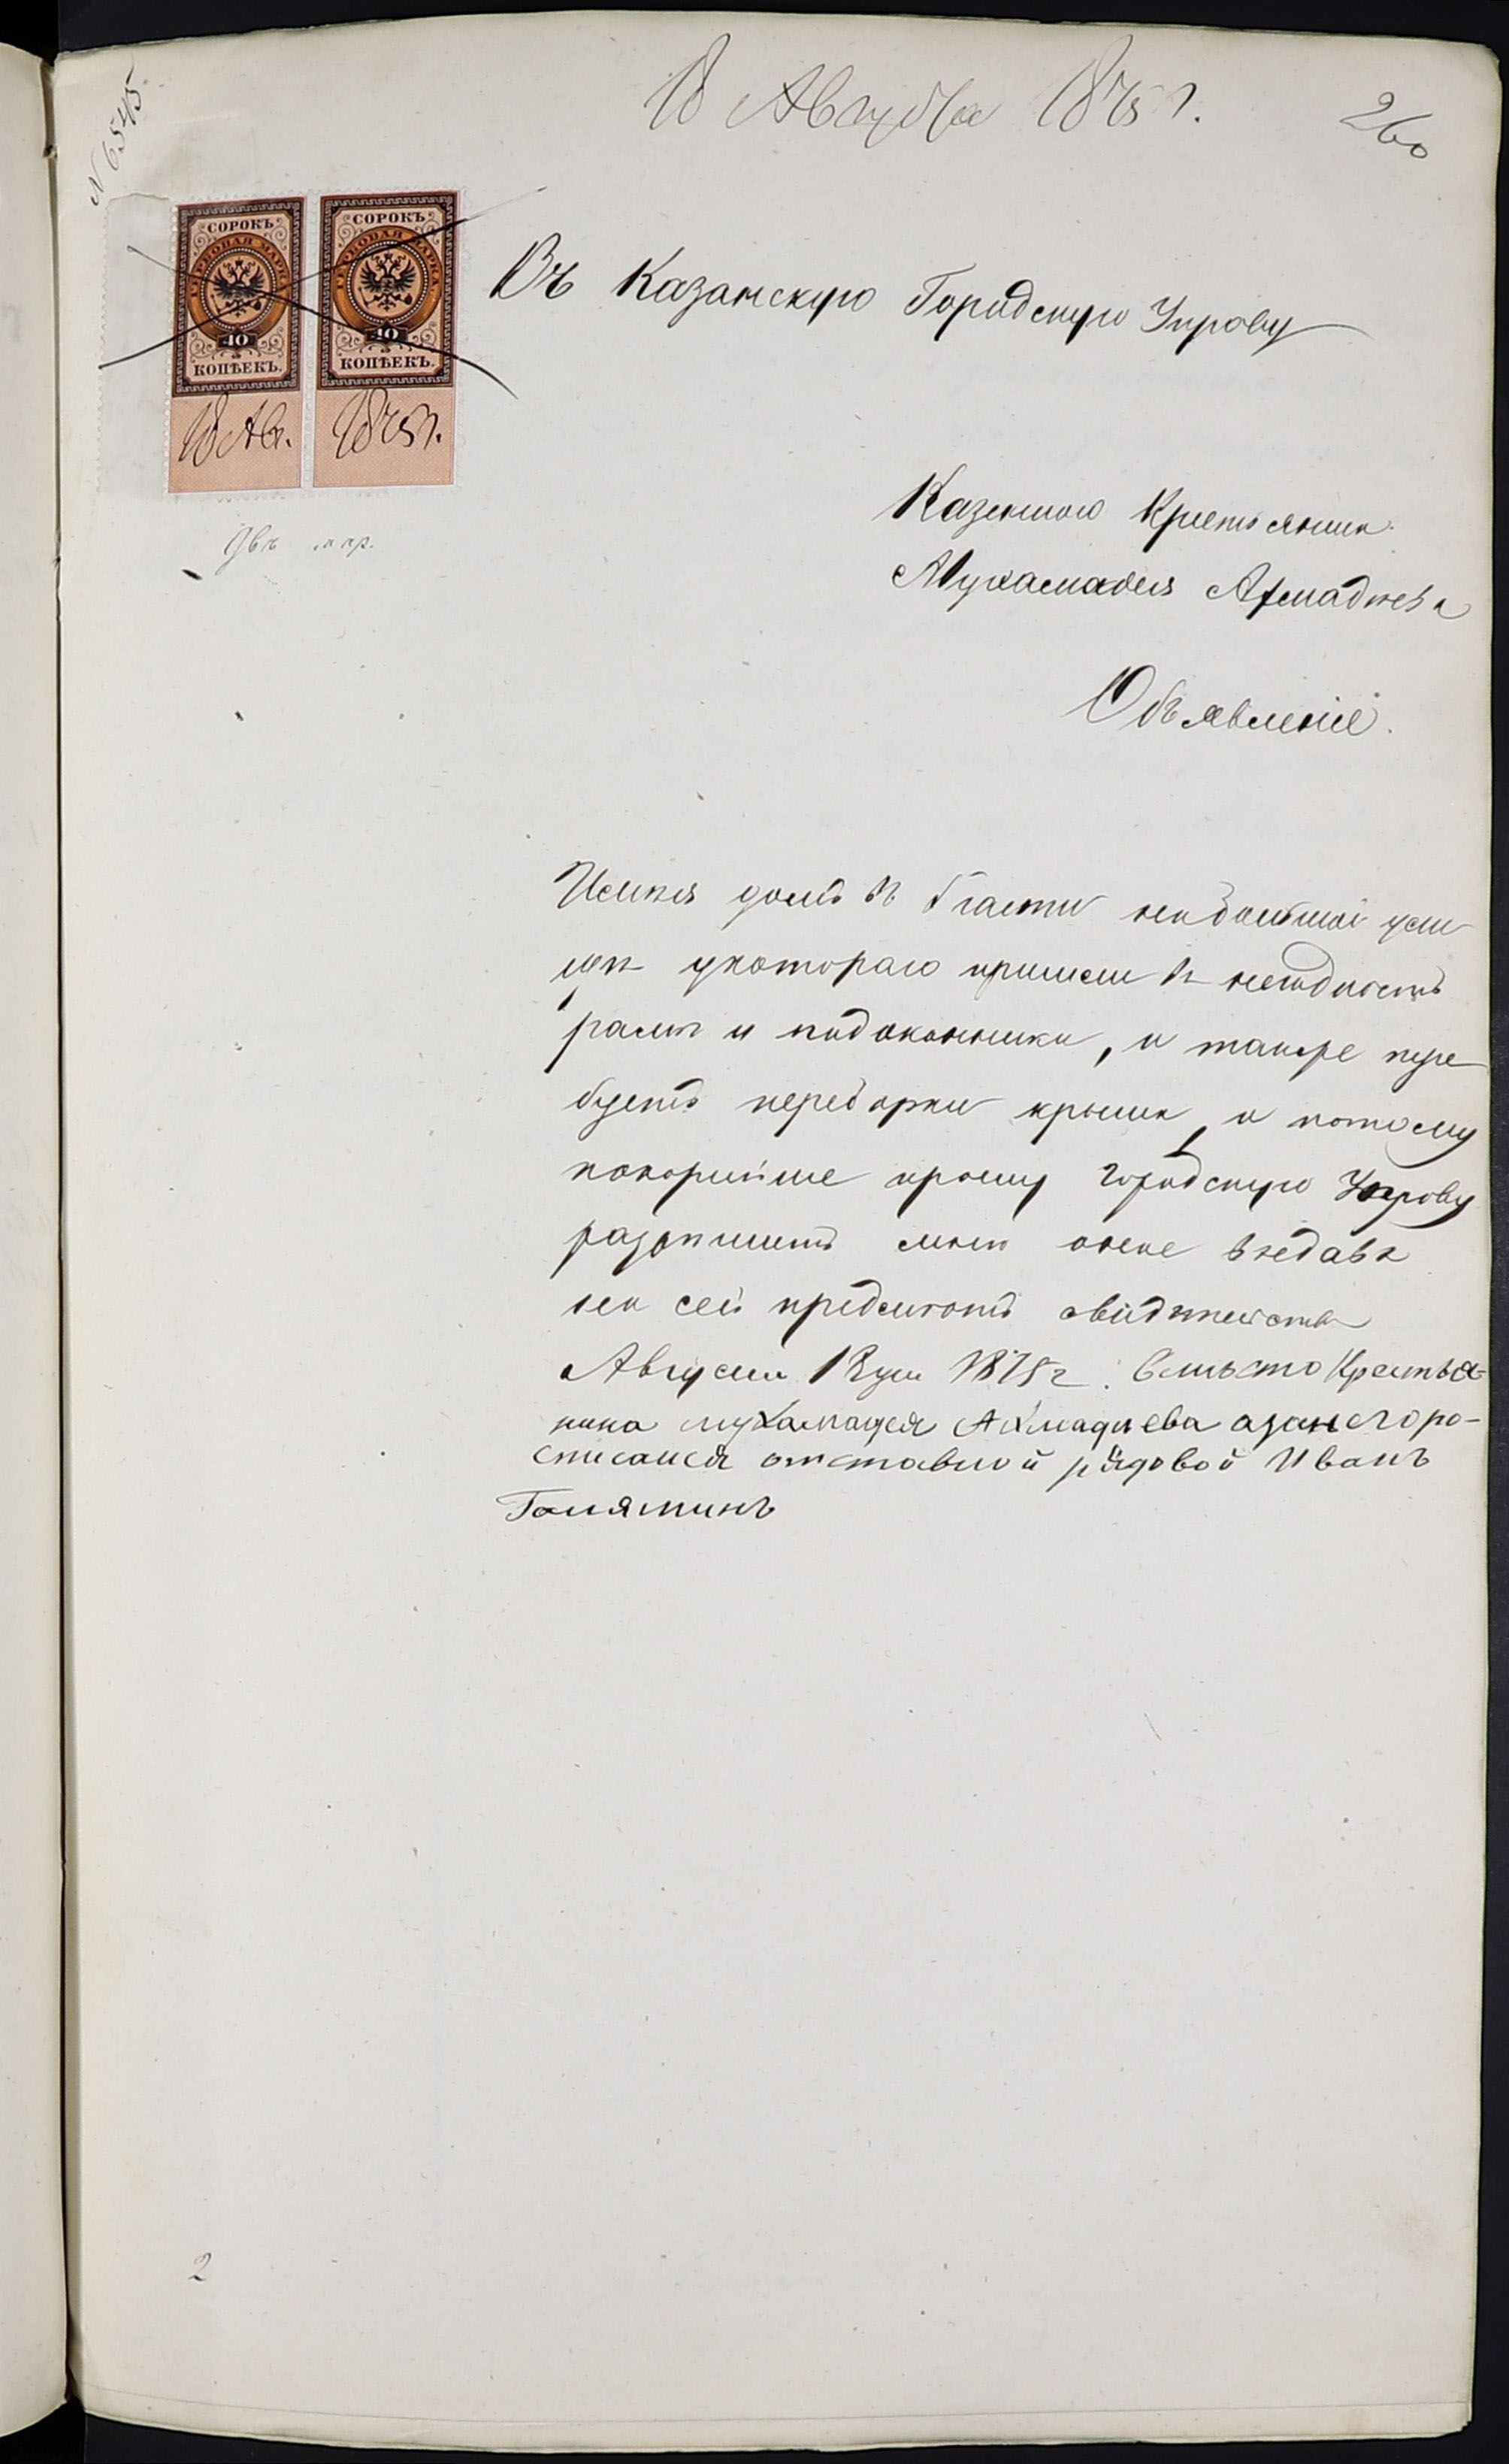 18 Августа 1875 г.
260
N 6545
СОРОКЪ СОРОКЪ
ГЕРБОВАЯ МАРКА ГЕРБОВАЯ МАРКА
40 40
КОПѢЕКЪ. КОПѢЕКЪ.
18 Ав. 1875 г.
Двѣ мар.
Въ Казанскую Городскую Управу
Казеннаго Крестьянина
Мухамадея Ахмадиева
Объявленіе.
Имѣя домъ въ 5 части на большой ули
цѣ укотораго пришли въ негодность
рамы и подоконники, и также тре
буетъ переборки крыша, и потому
покорнѣйше прошу Городскую Управу
разрѣшить мнѣ оное выдавъ
на сей предметъ свидѣтельство
Августа 18 дня 1875 г. Вмѣсто Крестья-
нина мухамадея Ахмадиева азанего ро-
списался отставной рядовой Иванъ
Галяминъ
2